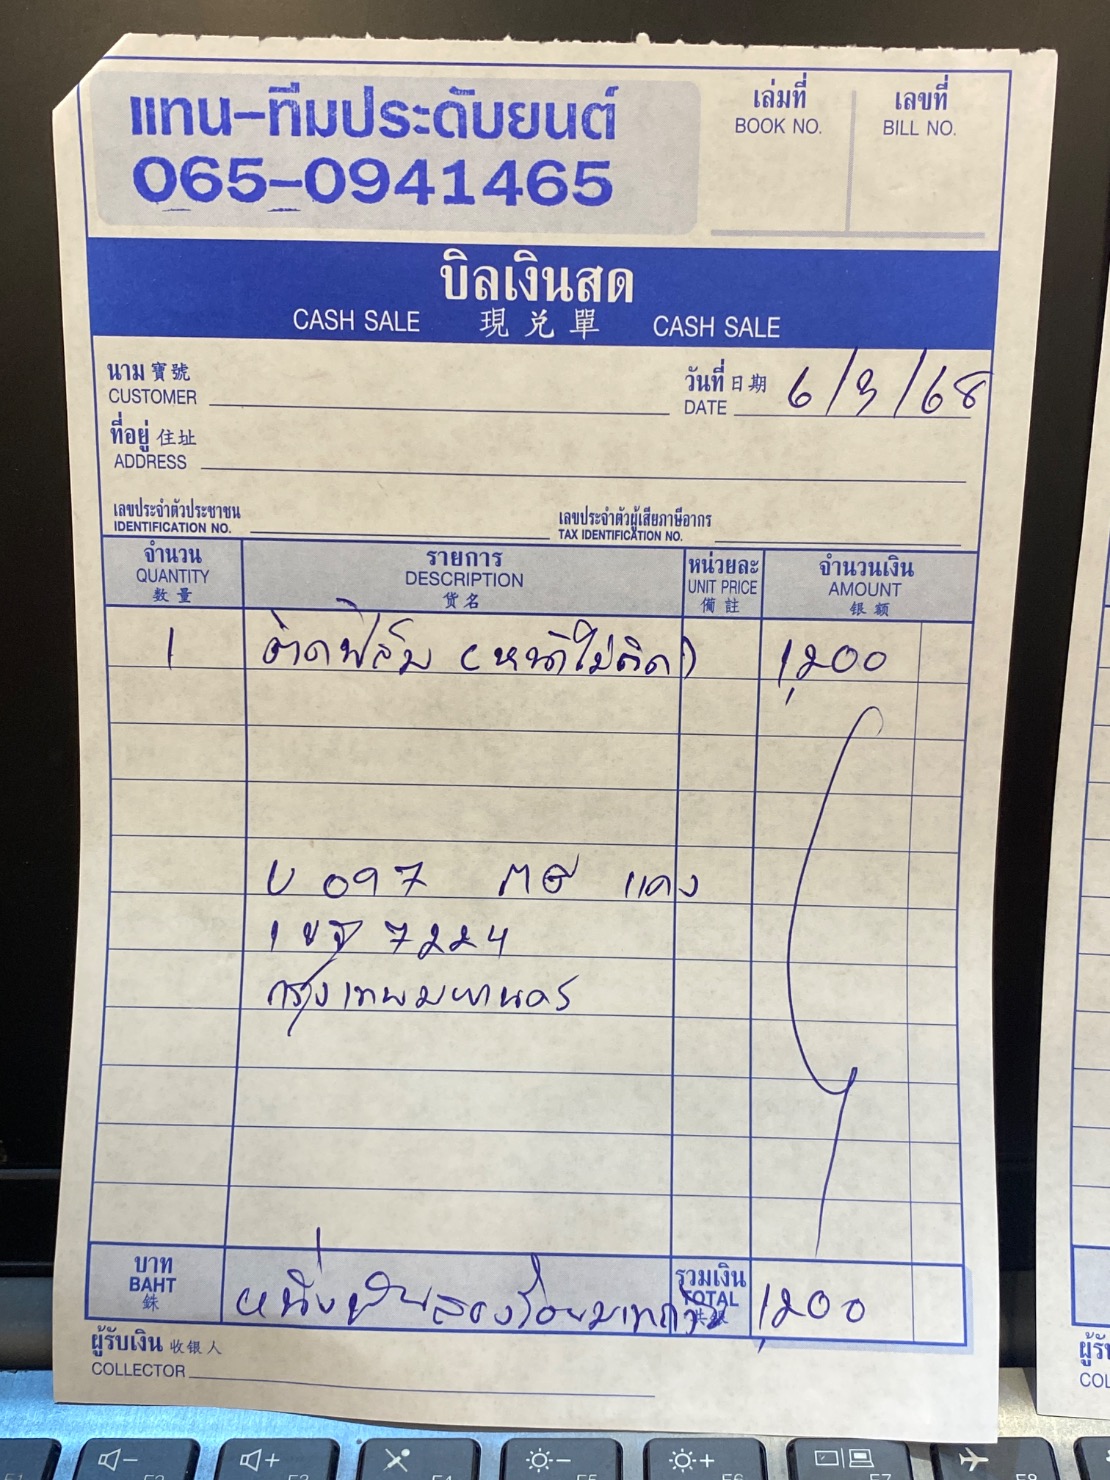 แทน-ทีมประดับยนต์
065-0941465
เล่มที่
BOOK NO.
เลขที่
BILL NO.
บิลเงินสด
CASH SALE 現兑單 CASH SALE
นาม 寶號
CUSTOMER
วันที่ 日期
DATE
6/3/68
ที่อยู่ 住址
ADDRESS
เลขประจำตัวประชาชน
IDENTIFICATION NO.
เลขประจำตัวผู้เสียภาษีอากร
TAX IDENTIFICATION NO.
จำนวน
QUANTITY
数量
รายการ
DESCRIPTION
货名
หน่วยละ
UNIT PRICE
備註
จำนวนเงิน
AMOUNT
银额
1 ติดฟิล์ม (หน้าไม่ติด) 1,200
U 097 MG แดง
7224
กรุงเทพมหานคร
บาท
BAHT
銖
หนึ่งพันสองร้อยบาทถ้วน
รวมเงิน
TOTAL
1,200
ผู้รับเงิน 收银人
COLLECTOR